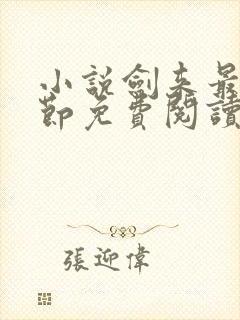 小說劍來最
節免費閱讀
張迎偉